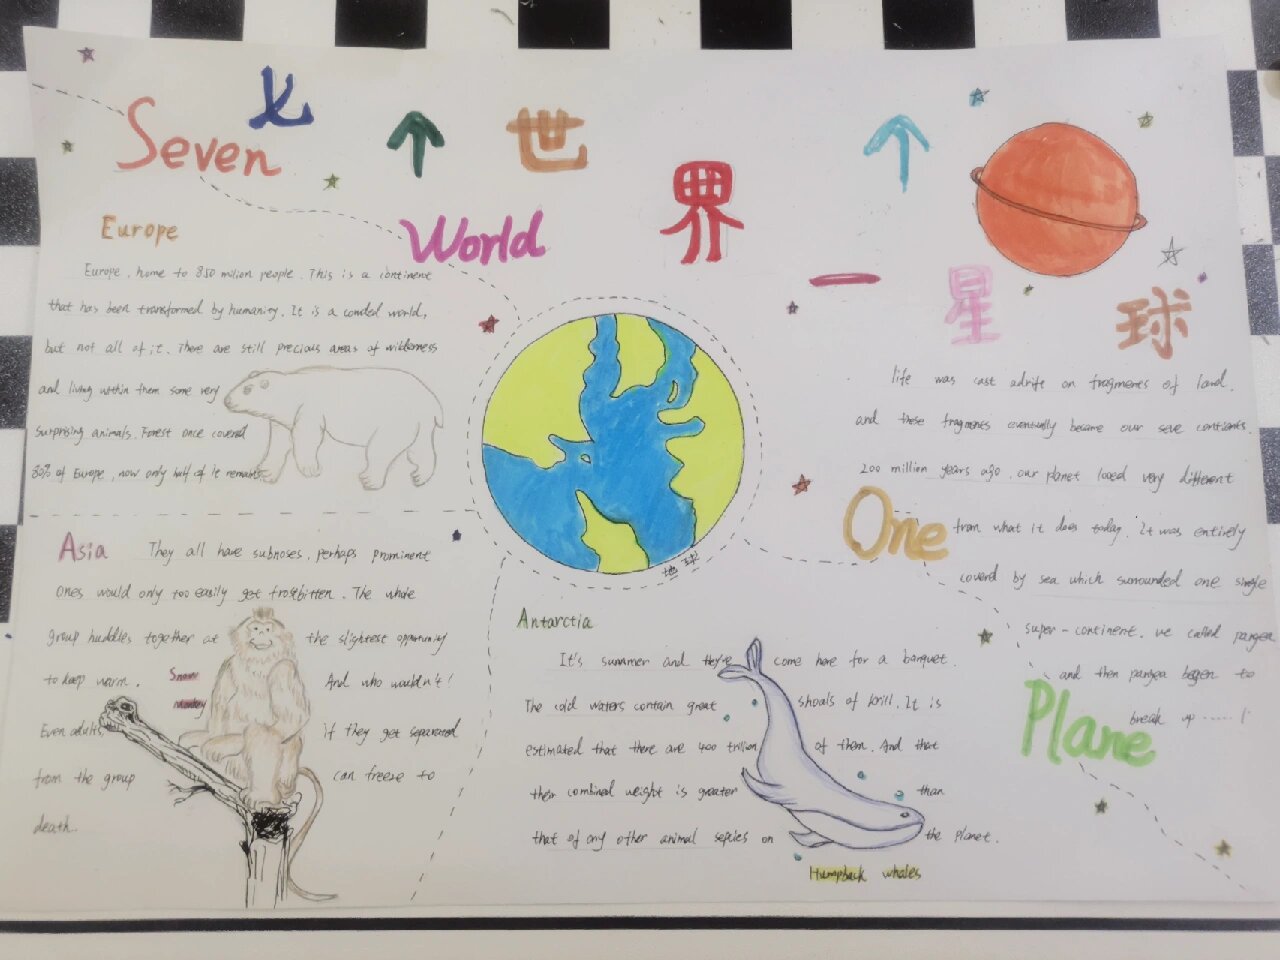 七个世界一个星球
Seven
World
One
Plane
Europe
Europe, home to 850 milion people. This is a continent
that has been transformed by humanity. It is a cowded world,
but not all of it. There are still precious areas of wilderness
and living within them some very
surprising animals. Forest once covered
80% of Europe, now only half of it remains.
Asia
They all have subnoses, perhaps prominent
ones would only too easily get frostbitten. The whole
group huddles together at the slightest opportunity
to keep warm. And who wouldn't!
Even adults, if they get separated
from the group can freeze to
death.
Snow
monkey
地球
Antarctia
It's summer and they're come here for a banquet.
The cold waters contain great shoals of krill. It is
estimated that there are 400 trillion of them. And that
their combined weight is greater than
that of any other animal sepcies on the planet.
Humpback whales
life was cast adrift on fragments of land,
and these fragments eventually became our seve contients.
200 million years ago, our planet looed very different
from what it does today. It was entirely
coverd by sea which surrounded one single
super-continent. we called pangea
and then pangea began to
break up ......!